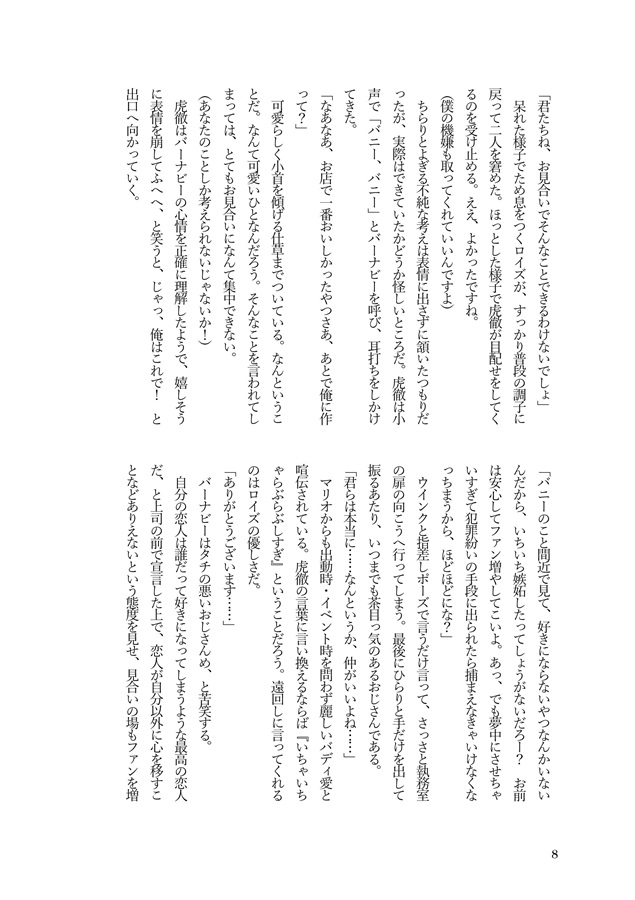 「君たちね、お見合いでそんなことできるわけないでしょ」
　呆れた様子でため息をつくロイズが、すっかり普段の調子に
戻って二人を窘めた。ほっとした様子で虎徹が目配せをしてく
るのを受け止める。ええ、よかったですね。
(僕の機嫌も取ってくれていいんですよ)
　ちらりとよぎる不純な考えは表情に出さずに頷いたつもりだ
ったが、実際はできていたかどうか怪しいところだ。虎徹は小
声で「バニー、バニー」とバーナビーを呼び、耳打ちをしかけ
てきた。
「なあなあ、お店で一番おいしかったやつさあ、あとで俺に作
って？」
　可愛らしく小首を傾げる仕草までついている。なんというこ
とだ。なんて可愛いひとなんだろう。そんなことを言われてし
まっては、とてもお見合いになんて集中できない。
(あなたのことしか考えられないじゃないか！)
　虎徹はバーナビーの心情を正確に理解したようで、嬉しそう
に表情を崩してふへへ、と笑うと、じゃっ、俺はこれで！　と
出口へ向かっていく。
「バニーのこと間近で見て、好きにならないやつなんかいない
んだから、いちいち嫉妬したってしょうがないだろー？　お前
は安心してファン増やしてこいよ。あっ、でも夢中にさせちゃ
いすぎて犯罪紛いの手段に出られたら捕まえなきゃいけなくな
っちまうから、ほどほどにな？」
　ウインクと指差しポーズで言うだけ言って、さっさと執務室
の扉の向こうへ行ってしまう。最後にひらりと手だけを出して
振るあたり、いつまでも茶目っ気のあるおじさんである。
「君らは本当に……なんというか、仲がいいよね……」
　マリオからも出動時・イベント時を問わず麗しいバディ愛と
喧伝されている。虎徹の言葉に言い換えるならば『いちゃいち
ゃらぶらぶしすぎ』ということだろう。遠回しに言ってくれる
のはロイズの優しさだ。
「ありがとうございます……」
　バーナビーはタチの悪いおじさんめ、と苦笑する。
　自分の恋人は誰だって好きになってしまうような最高の恋人
だ、と上司の前で宣言した上で、恋人が自分以外に心を移すこ
となどありえないという態度を見せ、見合いの場もファンを増
8